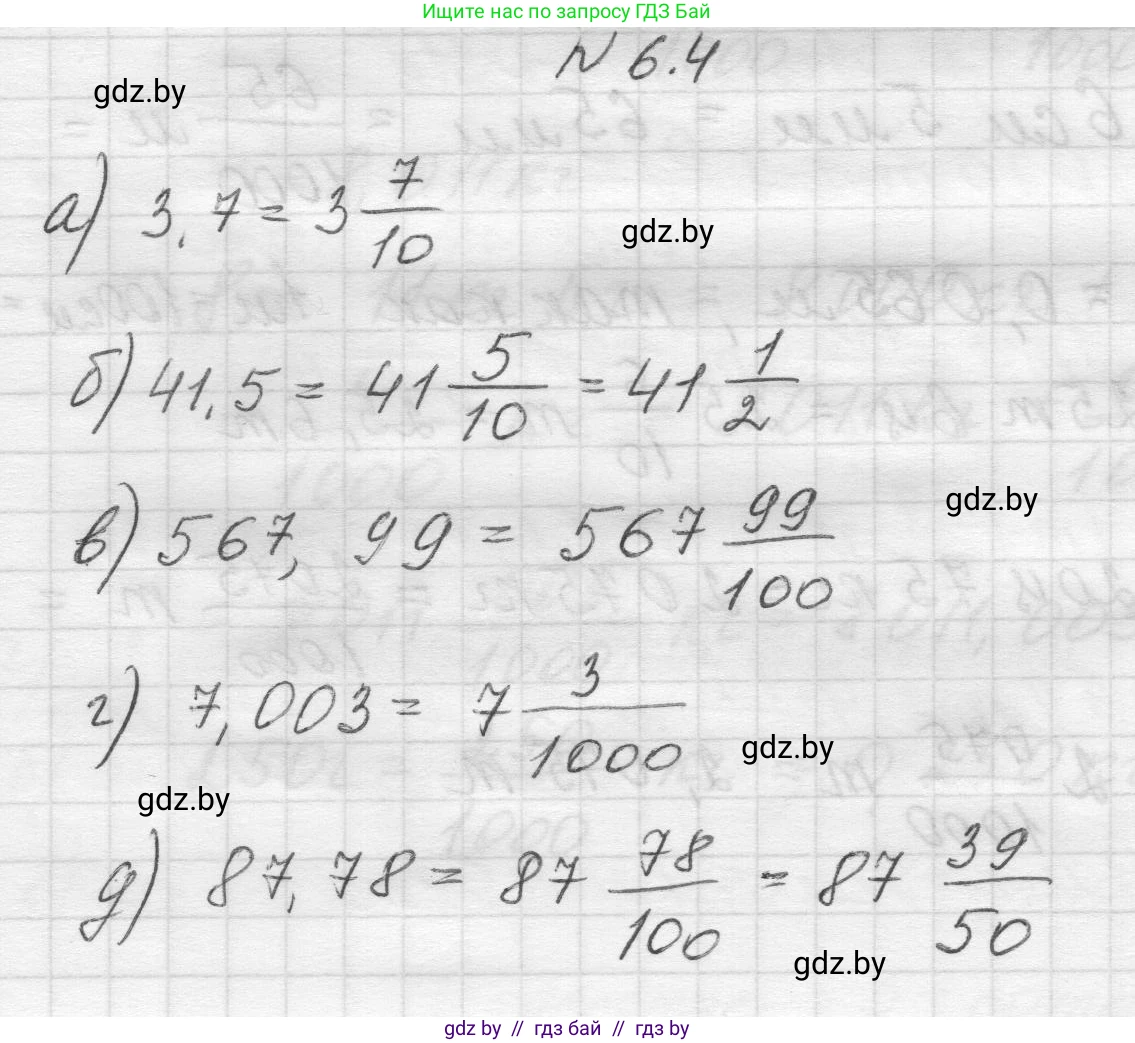 Ищите нас по запросу ГДЗ Бай
N 6.4
gdz.by
а) 3,7 = 3 7/10
gdz.by
б) 41,5 = 41 5/10 = 41 1/2
gdz.by
в) 567,99 = 567 99/100
г) 7,003 = 7 3/1000
gdz.by
gdz.by
д) 87,78 = 87 78/100 = 87 39/50
gdz.by
gdz by // гдз бай // гдз by